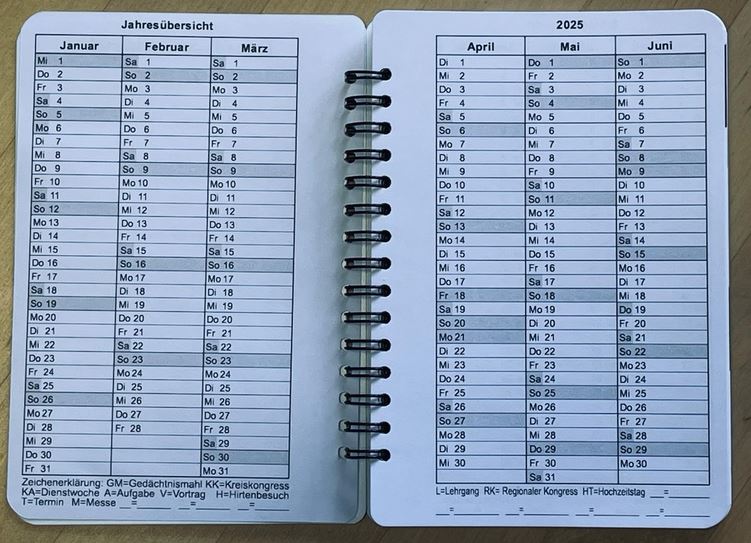 Jahresübersicht
Januar Februar März
Mi 1 Sa 1 Sa 1
Do 2 So 2 So 2
Fr 3 Mo 3 Mo 3
Sa 4 Di 4 Di 4
So 5 Mi 5 Mi 5
Mo 6 Do 6 Do 6
Di 7 Fr 7 Fr 7
Mi 8 Sa 8 Sa 8
Do 9 So 9 So 9
Fr 10 Mo 10 Mo 10
Sa 11 Di 11 Di 11
So 12 Mi 12 Mi 12
Mo 13 Do 13 Do 13
Di 14 Fr 14 Fr 14
Mi 15 Sa 15 Sa 15
Do 16 So 16 So 16
Fr 17 Mo 17 Mo 17
Sa 18 Di 18 Di 18
So 19 Mi 19 Mi 19
Mo 20 Do 20 Do 20
Di 21 Fr 21 Fr 21
Mi 22 Sa 22 Sa 22
Do 23 So 23 So 23
Fr 24 Mo 24 Mo 24
Sa 25 Di 25 Di 25
So 26 Mi 26 Mi 26
Mo 27 Do 27 Do 27
Di 28 Fr 28 Fr 28
Mi 29 Sa 29
Do 30 So 30
Fr 31 Mo 31
Zeichenerklärung: GM=Gedächtnismahl KK=Kreiskongress
KA=Dienstwoche A=Aufgabe V=Vortrag H=Hirtenbesuch
T=Termin M=Messe __=______ __=______
2025
April Mai Juni
Di 1 Do 1 So 1
Mi 2 Fr 2 Mo 2
Do 3 Sa 3 Di 3
Fr 4 So 4 Mi 4
Sa 5 Mo 5 Do 5
So 6 Di 6 Fr 6
Mo 7 Mi 7 Sa 7
Di 8 Do 8 So 8
Mi 9 Fr 9 Mo 9
Do 10 Sa 10 Di 10
Fr 11 So 11 Mi 11
Sa 12 Mo 12 Do 12
So 13 Di 13 Fr 13
Mo 14 Mi 14 Sa 14
Di 15 Do 15 So 15
Mi 16 Fr 16 Mo 16
Do 17 Sa 17 Di 17
Fr 18 So 18 Mi 18
Sa 19 Mo 19 Do 19
So 20 Di 20 Fr 20
Mo 21 Mi 21 Sa 21
Di 22 Do 22 So 22
Mi 23 Fr 23 Mo 23
Do 24 Sa 24 Di 24
Fr 25 So 25 Mi 25
Sa 26 Mo 26 Do 26
So 27 Di 27 Fr 27
Mo 28 Mi 28 Sa 28
Di 29 Do 29 So 29
Mi 30 Fr 30 Mo 30
Sa 31
L=Lehrgang RK= Regionaler Kongress HT=Hochzeitstag __=______
__=______ __=______ __=______ __=______